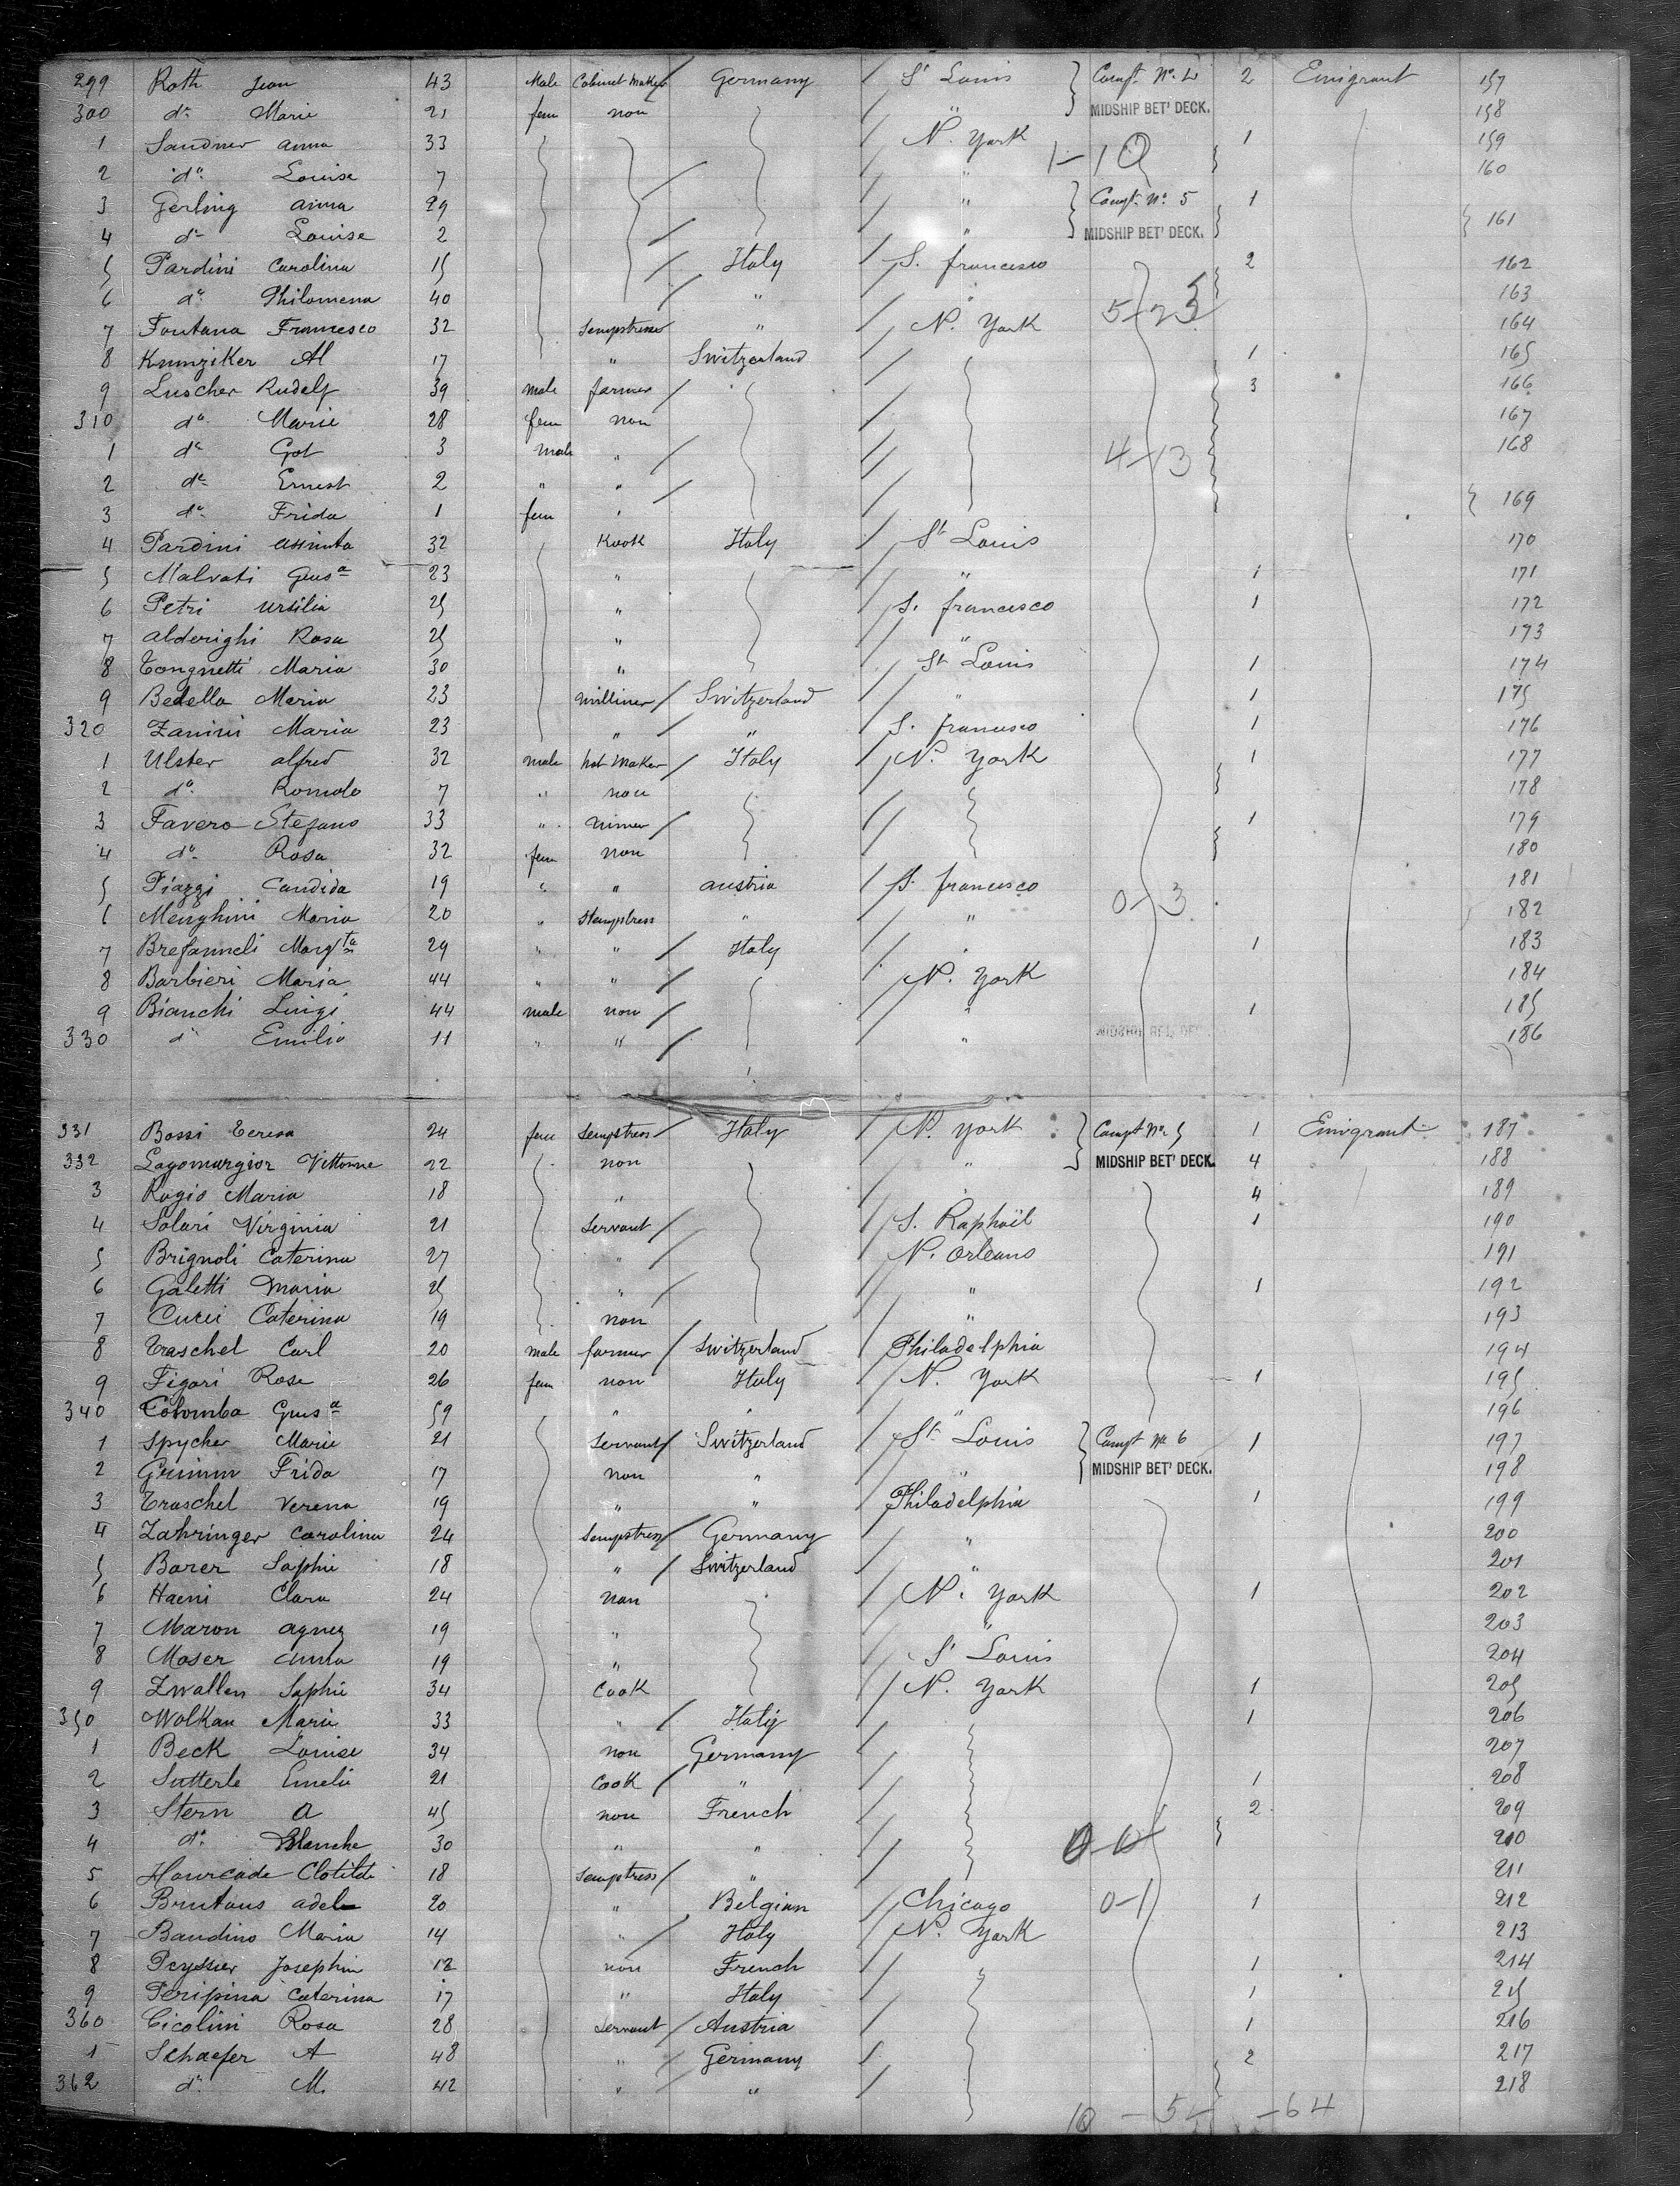 299 Roth Jean 43 Male Cabinet Maker Germany St Louis Compt. No. 4 2 Emigrant 157
300 do Marie 21 fem non MIDSHIP BET' DECK. 158
1 Sandner Anna 33 N. York 1 159
1-10
2 do Louise 7 " 160
3 Gerling Anna 29 " Compt. No. 5 1
4 do Louise 2 " MIDSHIP BET' DECK. 161
5 Pardini Carolina 15 Italy S. francesco 2 162
6 do Philomena 40 " " 163
5-23
7 Fontana Francesco 32 Sempstress " N. York 164
8 Kunziker Al 17 " Switzerland 1 165
9 Luscher Rudolf 39 male farmer 3 166
310 do Marie 28 fem non 167
1 do Got 3 male " 168
4-13
2 do Ernest 2 " "
3 do Frida 1 fem " 169
4 Pardini Assunta 32 Kook Italy St Louis 170
5 Malvati Gius a 23 " " 1 171
6 Petri Ursilia 25 " S. francesco 1 172
7 Alderighi Rosa 25 " " 173
8 Tongnetti Maria 30 " St Louis 1 174
9 Bedella Maria 23 Milliner Switzerland " 1 175
320 Zanini Maria 23 " " S. francesco 1 176
1 Ulster Alfred 32 male hat Maker Italy N. York 1 177
2 do Romolo 7 " non 178
3 Favero Stefano 33 " miner 1 179
4 do Rosa 32 fem non 180
5 Piazzi Candida 19 " " Austria S. francesco 181
0-3
6 Menghini Maria 20 " Stempstress " " 182
7 Brefanneli Margta 29 " " Italy " 1 183
8 Barbieri Maria 44 " " N. York 184
9 Bianchi Luigi 44 male non " 1 185
330 do Emilio 11 " " " MIDSHIP BET' DECK. 186
331 Bossi Teresa 24 fem Sempstress Italy N. York Compt No. 5 1 Emigrant 187
332 Lagomargior Vittorine 22 non " MIDSHIP BET' DECK. 4 188
3 Rogio Maria 18 " " 4 189
4 Solari Virginia 21 Servant S. Raphaël 1 190
5 Brignoli Caterina 27 " N. Orleans 191
6 Galetti Maria 25 " " 1 192
7 Cucci Caterina 19 non " 193
8 Traschel Carl 20 male farmer Switzerland Philadelphia 194
9 Figari Rose 26 fem non Italy N. York 1 195
340 Colomba Gius a 59 " " " 196
1 Spycher Marie 21 Servant Switzerland St Louis Compt No 6 1 197
2 Grimm Frida 17 non " " MIDSHIP BET' DECK. 198
3 Traschel Verena 19 " " Philadelphia 1 199
4 Zahringer Carolina 24 Sempstress Germany " 200
5 Borer Sophie 18 " Switzerland " 201
6 Haeni Clara 24 non N. York 1 202
7 Maron Agnez 19 " " 203
8 Moser Anna 19 " St Louis 204
9 Zwallen Sophie 34 Cook N. York 1 205
350 Wolkan Marie 33 " Italy 1 206
1 Beck Louise 34 non Germany 207
2 Sutterle Emelie 21 Cook " 1 208
3 Stern A 45 non French 2 209
4 do Blanche 30 " " 210
5 Hourcade Clotilde 18 Sempstress " 211
6 Brutous Adele 20 " Belgian Chicago 0-1 1 212
7 Baudino Maria 14 " Italy N. York 213
8 Peyssier Josephine 12 non French 1 214
9 Peripina Caterina 17 " Italy 1 215
360 Cicolini Rosa 28 Servant Austria 1 216
1 Schaefer A 48 " Germany 2 217
362 do M. 42 " " 218
10 - 54 - 64